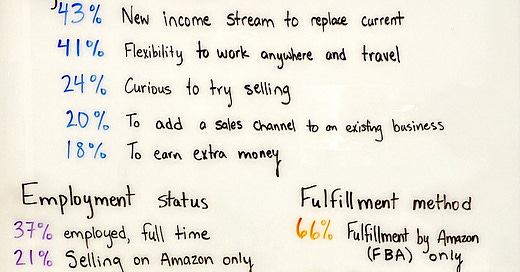 43% New income stream to replace current
41% Flexibility to work anywhere and travel
24% Curious to try selling
20% To add a sales channel to an existing business
18% To earn extra money
Employment status
37% employed, full time
21% Selling on Amazon only
Fulfillment method
66% Fulfillment by Amazon
(FBA) only